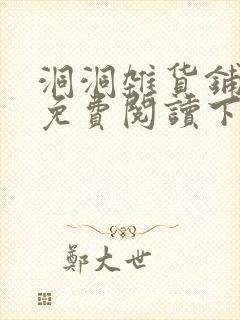 洞洞雜貨鋪
免費閱讀下
鄭大世